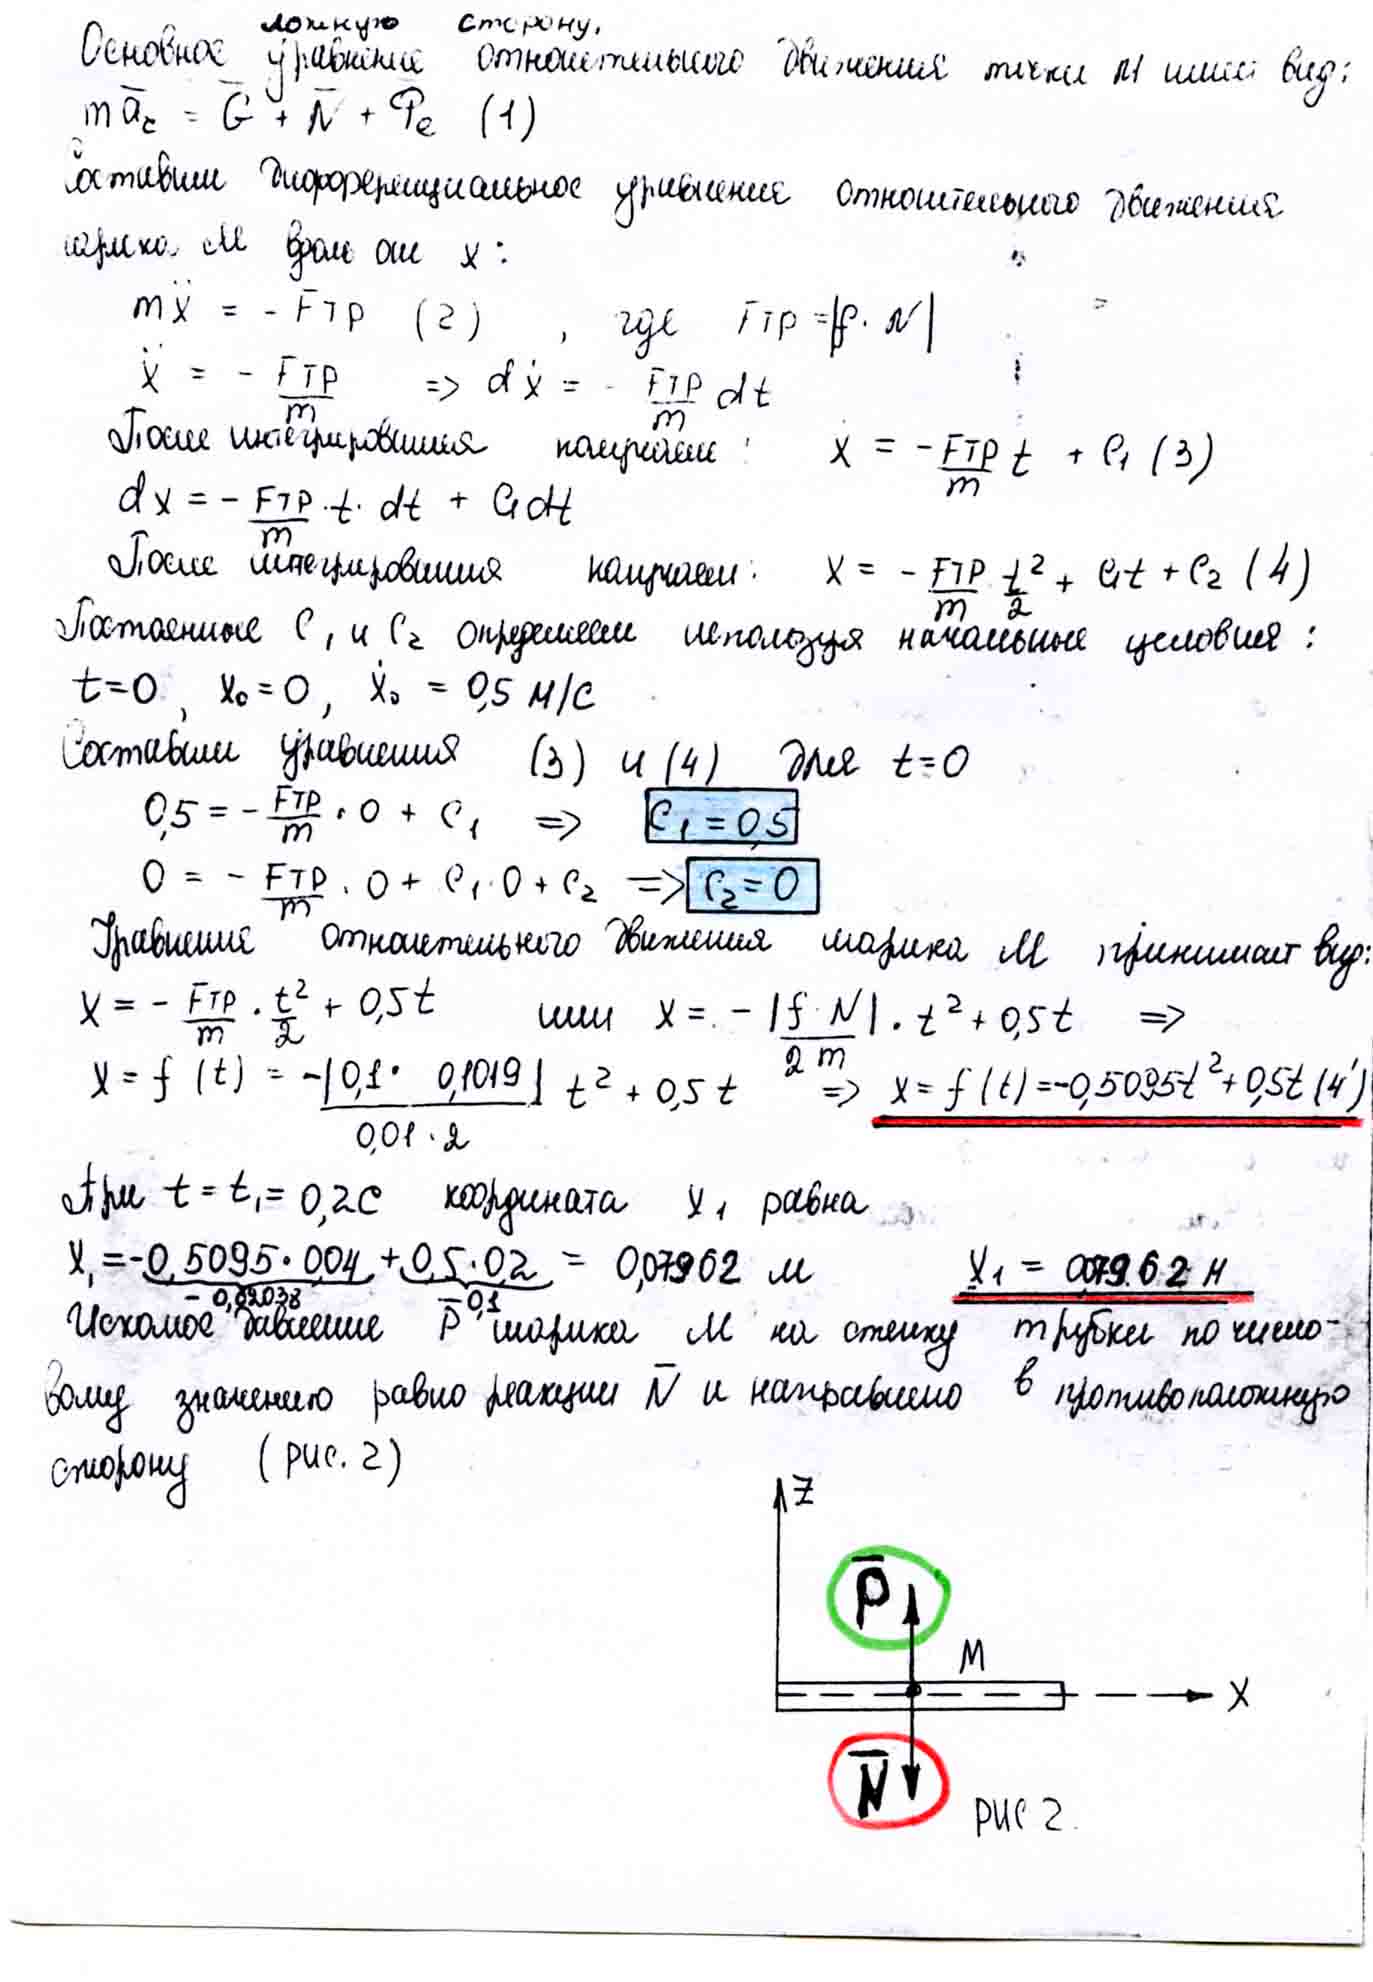 ложную сторону.
Основное уравнение относительного движения точки М имеет вид:
m a̅c = G̅ + N̅ + Φ̅e (1)
Составим дифференциальное уравнение относительного движения
шарика М вдоль оси x:
mẍ = - Fтр (2) , где Fтр = |f · N|
ẍ = - Fтр/m => dẋ = - Fтр/m dt
После интегрирования получаем: ẋ = - Fтр/m t + C₁ (3)
dx = - Fтр/m · t · dt + C₁dt
После интегрирования получаем: x = - Fтр/m · t²/2 + C₁t + C₂ (4)
Постоянные C₁ и C₂ определяем используя начальные условия:
t=0, x₀=0, ẋ₀ = 0,5 м/с
Составим уравнения (3) и (4) для t=0
0,5 = - Fтр/m · 0 + C₁ => C₁ = 0,5
0 = - Fтр/m · 0 + C₁·0 + C₂ => C₂ = 0
Уравнение относительного движения шарика М принимает вид:
x = - Fтр/m · t²/2 + 0,5t или x = - |f·N|/2m · t² + 0,5t =>
x = f(t) = -|0,1 · 0,1019|/0,01·2 t² + 0,5t => x = f(t) = -0,5095t² + 0,5t (4')
При t = t₁ = 0,2с координата x₁ равна
x₁ = -0,5095·0,04 + 0,5·0,2 = 0,07962 м x₁ = 0,07962 м
- 0,02038 0,1
Искомое давление P̅ шарика М на стенку трубки по число-
вому значению равно реакции N̅ и направлено в противоположную
сторону (рис. 2)
Z
P̅
M
X
N̅
Рис 2.